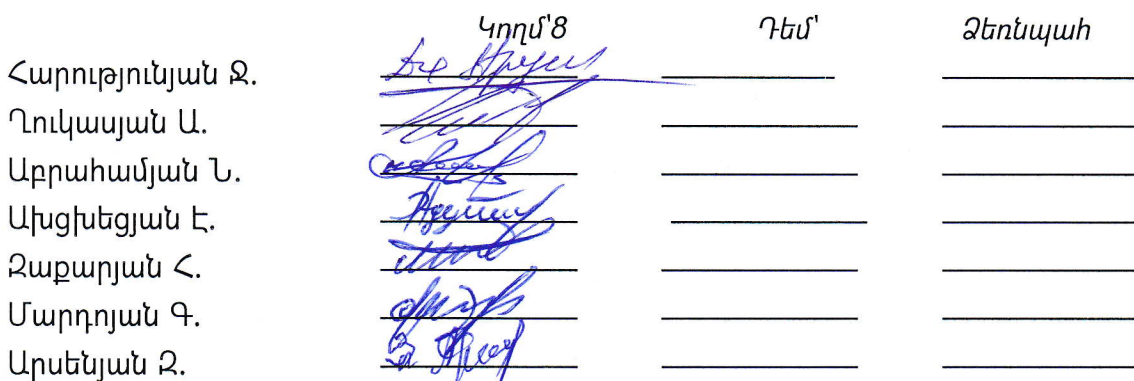 Կողմ՝8 Դեմ՝ Ձեռնպահ
Հարությունյան Ջ.
Ղուկասյան Ա.
Աբրահամյան Ն.
Ախցխեցյան Է.
Զաքարյան Հ.
Մարդոյան Գ.
Արսենյան Զ.